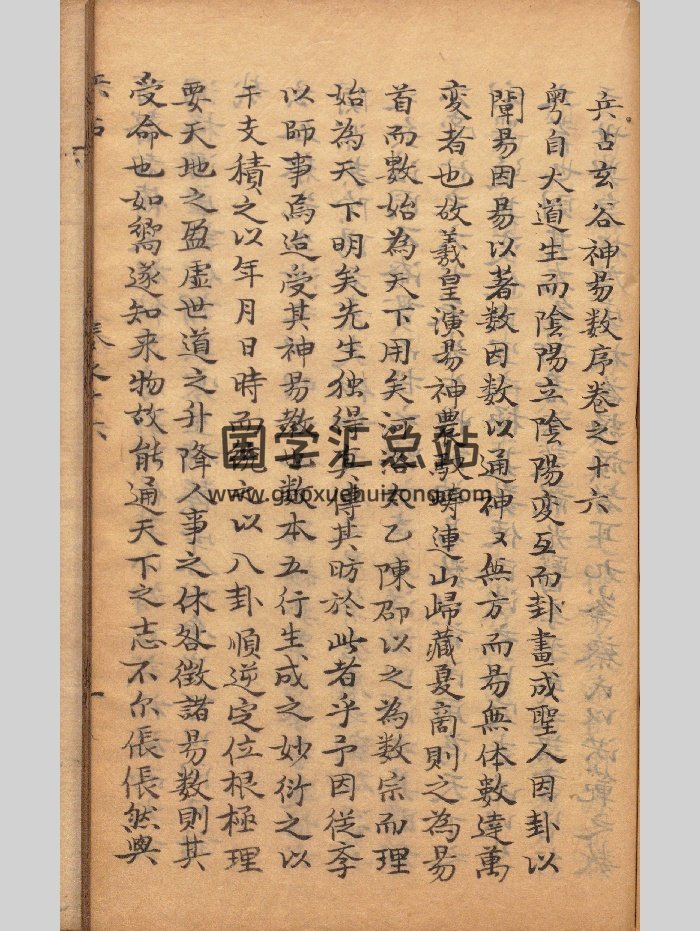 兵占玄谷神易数序卷之十六
粤自大道生而陰陽立陰陽变互而卦畫成聖人因卦以
闡易因易以著数因数以通神〻無方而易無体數達萬
变者也故羲皇演易神農啟疇連山歸藏夏商則之為易
首而數始為天下用矣河洛太乙陳邵以之為数宗而理
始為天下明矣先生独得其傳其昉於此者乎予因從李
以師事焉迨受其神易数也数本五行生成之妙衍之以
干支積之以年月日時而之以八卦順逆定位根極理
要天地之盈虛世道之升降人事之休咎徵諸易数則其
受命也如嚮遂知来物故能通天下之志不尔倀倀然與
兵占
卷之十六
一
国学汇总站
www.guoxuehuizong.com